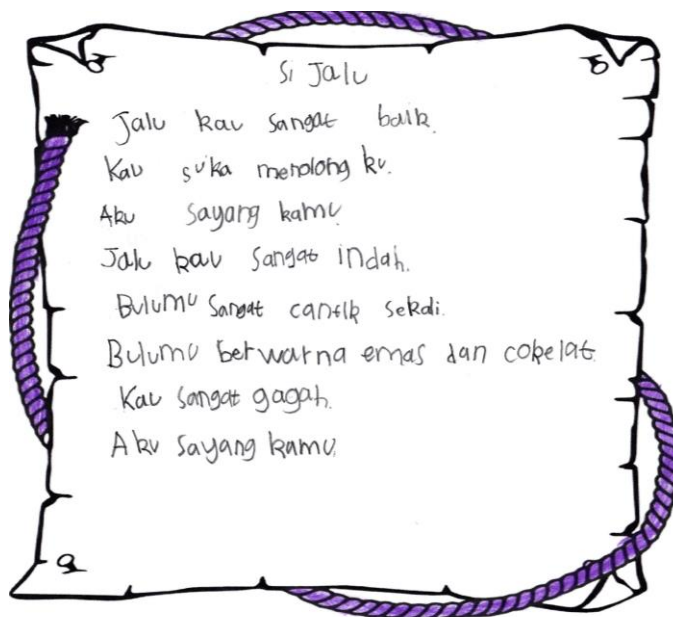 Si Jalu
Jalu kau sangat baik.
Kau suka menolong ku.
Aku sayang kamu
Jalu kau sangat indah.
Bulumu sangat cantik sekali.
Bulumu berwarna emas dan cokelat.
Kau sangat gagah.
Aku sayang kamu